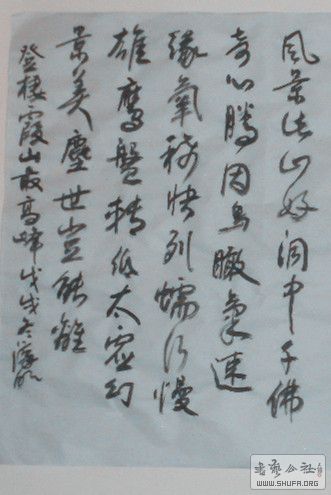 風景此山好洞中千佛
奇心騰因鳥瞰氣速
緣氧稀快列蠕行慢
雄鷹盤轉低太虛幻
景美塵世豈能離
登棲霞山最高峰戊戌冬
書藝公社
WWW.SHUFA.ORG